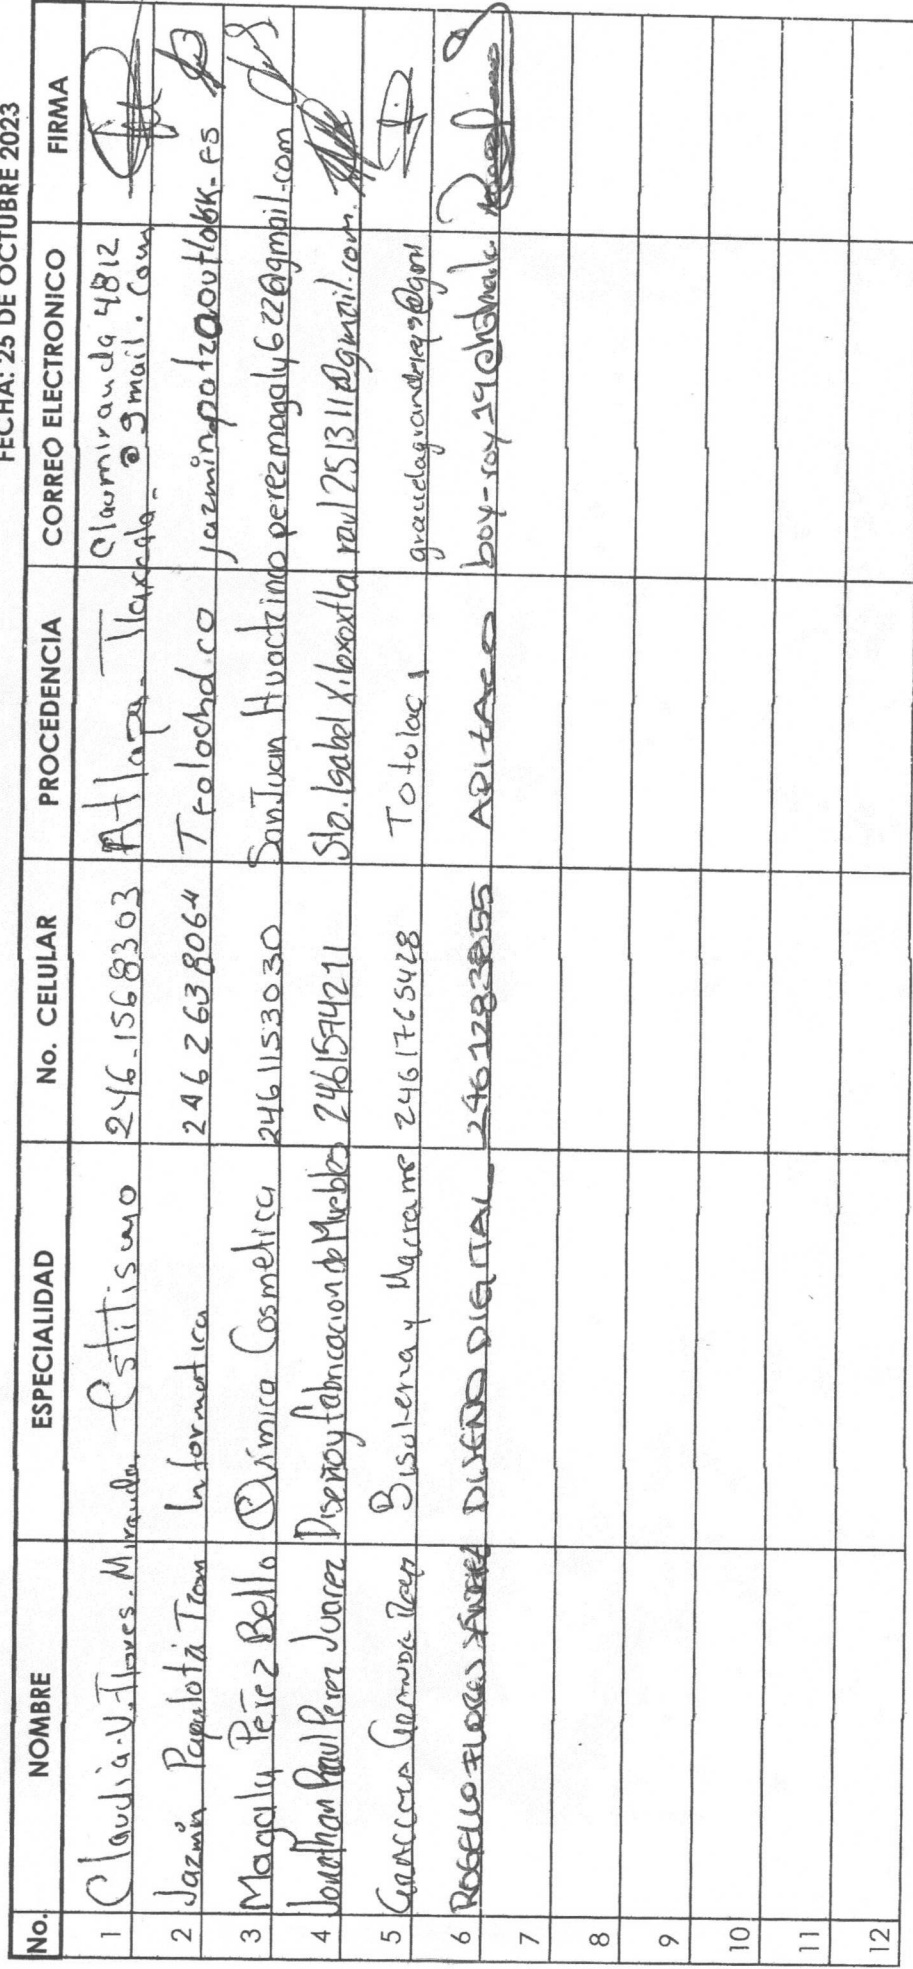 FECHA: 25 DE OCTUBRE 2023
No. NOMBRE ESPECIALIDAD No. CELULAR PROCEDENCIA CORREO ELECTRONICO FIRMA
1 Claudia.V.Flores.Miranda. Estilismo 246-1568303 Atlapa- Tlaxcala- Claumiranda4812
@gmail.com
2 Jazmín Papalotzi Informatica 2462638064 Teolocholco
3 Magaly Pérez Bello Química Cosmetica 2461153030 San Juan Huactzinco perezmagaly622@gmail.com
4 Jonathan Raul Perez Juarez Diseño y fabricacion de Muebles 2461574211 Sta. Isabel Xiloxoxtla raul251311@gmail.com
5 Granda Bisuteria y Macrame 2461765428 Totolac
6 ROGELIO FLORES DISEÑO DIGITAL APIZACO
7
8
9
10
11
12